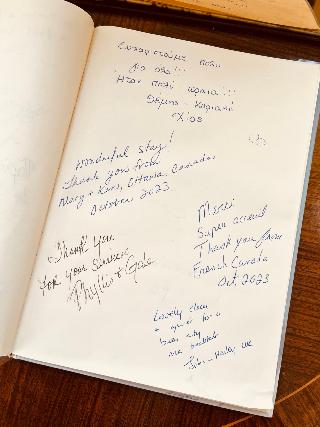 Ευχαριστούμε πολύ
για όλα!!!
Ήταν πολύ ωραία!!!
Χίος
Wonderful stay!
Thank you from
Mary + Ken, Ottawa Canada
October 2023
Merci
Super accueil
Thank you from
French Canada
Oct 2023
Thank You
for your
Phyllis + Gale
Lovely clean
+ quiet for a
busy city
nice breakfast
Hailey UK